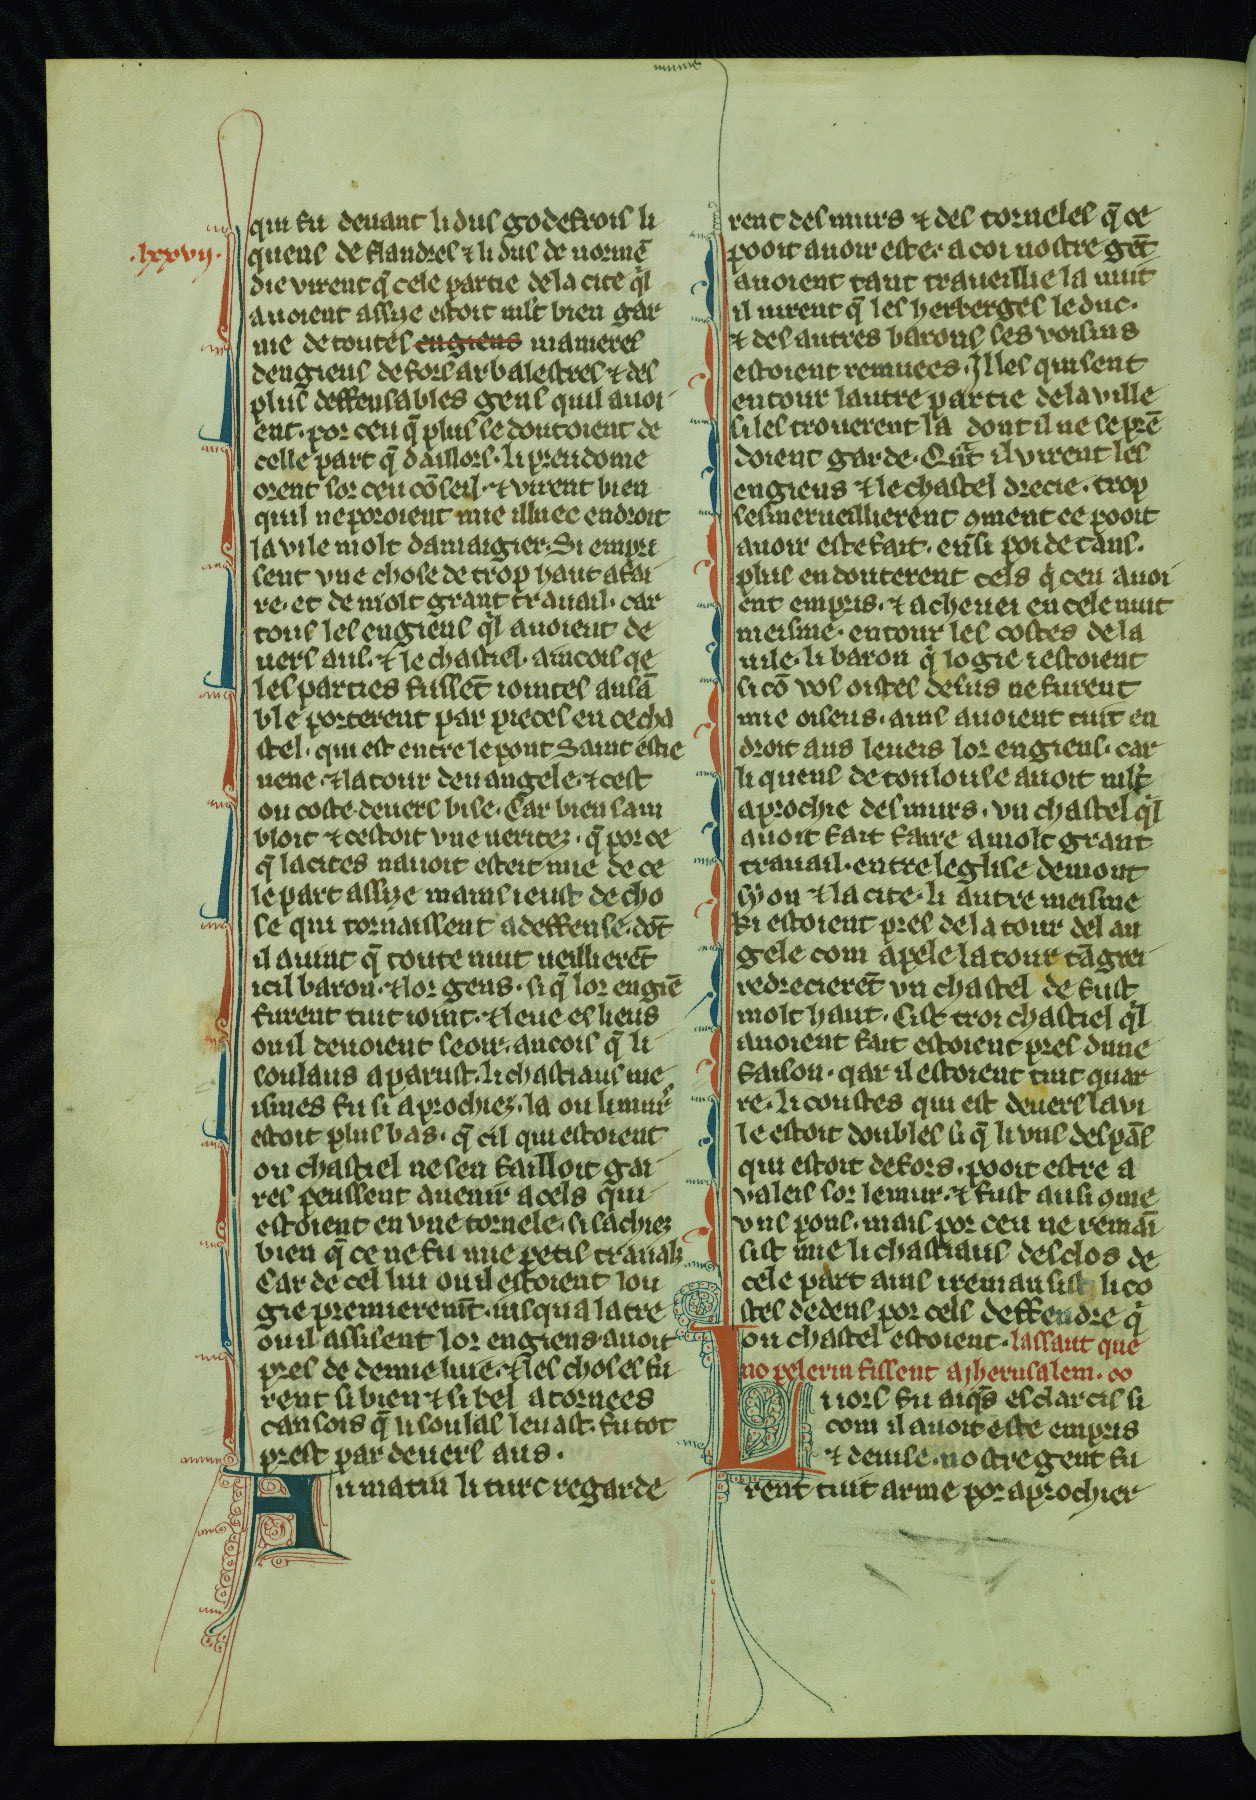 .lxxvij.
qui fu deuant li dus godefrois li
quens de flandres & li dus de normē
die virent q̄ cele partie de la cite q̓l
auoient assije estoit mlt bien gar
nie de toutes engiens manieres
dengiens de fors arbalestres & des
plus deffensables gens quil auoi
ent. por ceu q̄ plus se doutoient de
celle part q̄ daillors. li preudome
orent sor ceu cōseil. & virent bien
quil ne poroient mie illuec endroit
la vile molt damaigier. Si empri
sent vne chose de trop haut afai
re. et de molt grant trauail. car
tous les engiens q̓l auoient de
uers aus. & le chastiel. aincois qe
les parties fussēt iointes ausā
ble porterent par pieces en ce cha
stel. qui est entre le pont Saint estie
uene. & la tour deu angele. & cest
ou coste deuers bise. Car bien sam
bloit & cestoit vne veritez. q̄ por ce
q̄ la cites nauoit esteit mie de ce
le part assije mains i eust de cho
se qui tornaissent a deffense. dōt
il auint q̄ toute nuit veillierēt
icil baron. & lor gens. si q̄ lor engiē
furent tuit ioint. & leue es lieus
ou il deuoient seoir. ancois q̄ li
soulaus aparust. li chastiaus me
ismes fu si aprochiez. la ou li mur
estoit plus bas. q̄ cil qui estoient
ou chastiel ne sen failloit gai
res peussent auenir a cels qui
estoient en vne tornele. si sachiez
bien q̄ ce ne fu mie petis trauails
Car de cel liu ou il estoient lou
gie premieremt̄. iusqua la tre
ou il assisent lor engiens auoit
pres de demie liue. & les choses fu
rent si bien & si bel atornees
cansois q̄ li soulas leuast. fu tot
prest par deuers aus.
Au matin li turc regarde
rent des murs & des torneles q̄ ce
pooit auoir este. a coi nostre gēt
auoient tant traueillie la nuit
il uirent q̄ les herberges le duc.
& des autres barons ses voisins
estoient remuees. Illes quisent
entour lautre partie de la ville
si les trouerent la dont il ne se prē
doient garde. Qnt̄ il virent les
engiens & le chastel drecie. trop
sesmerueillierent 9ment ce pooit
auoir este fait. ensi poi de tans.
plus en douterent cels q̓ ceu auoi
ent empris. & acheuei en cele nuit
meisme. entour les costes de la
uile. li baron q̓ logie i estoient
si cō vos oistes desus ne furent
mie oiseus. ains auoient tuit en
droit aus leueis lor engiens. car
li quens de toulouse auoit mlt
aprochie des murs. vn chastel q̓l
auoit fait faire a molt grant
trauail. entre leglise de mont
syon & la cite. li autre meisme
ki estoient pres de la tour del an
gele com apele la tour tāgrei
redrecierēt vn chastel de fust
molt haut. Cist troi chastiel q̓l
auoient fait estoient pres dune
faison. qar il estoient tuit quar
re. li coustes qui est deuers la vi
le estoit doubles si q̄ li vns des pās
qui estoit defors. pooit estre a
valeis sor le mur. & fust ausi 9me
vns pons. mais por ceu ne remai
sist mie li chastiaus desclos de
cele part ains i remansist li co
stel dedens por cels deffendre q̓
ou chastel estoient. lassaut que
no pelerin fissent a jherusalem.
Li iors fu aiqs̄ esclarcis si
com il auoit este empris
& deuise. nostre gent fu
rent tuit arme por aprochier